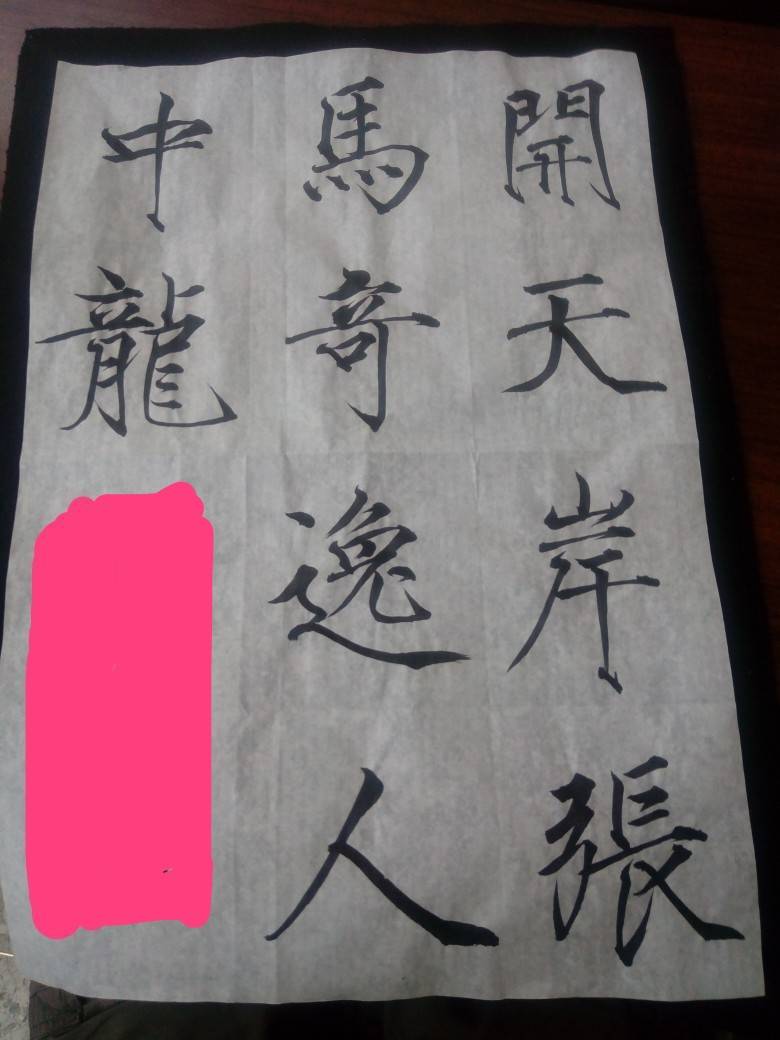 開天岸張
馬奇逸人
中龍